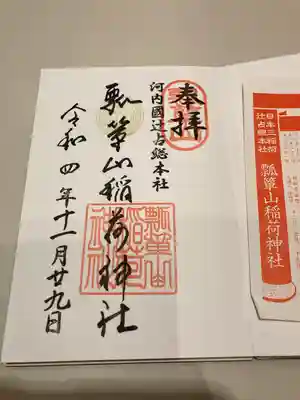 奉拝
河内國辻占総本社
瓢箪山稲荷神社
令和四年十一月廿九日
日本三稲荷
辻占総本社
瓢箪山稲荷神社